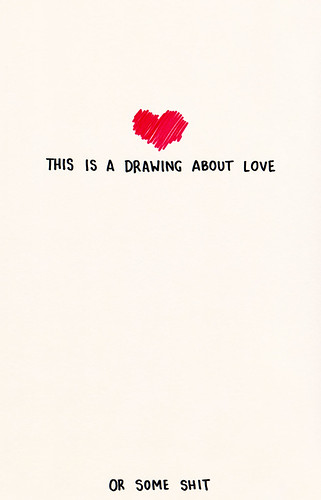 THIS IS A DRAWING ABOUT LOVE
OR SOME SHIT